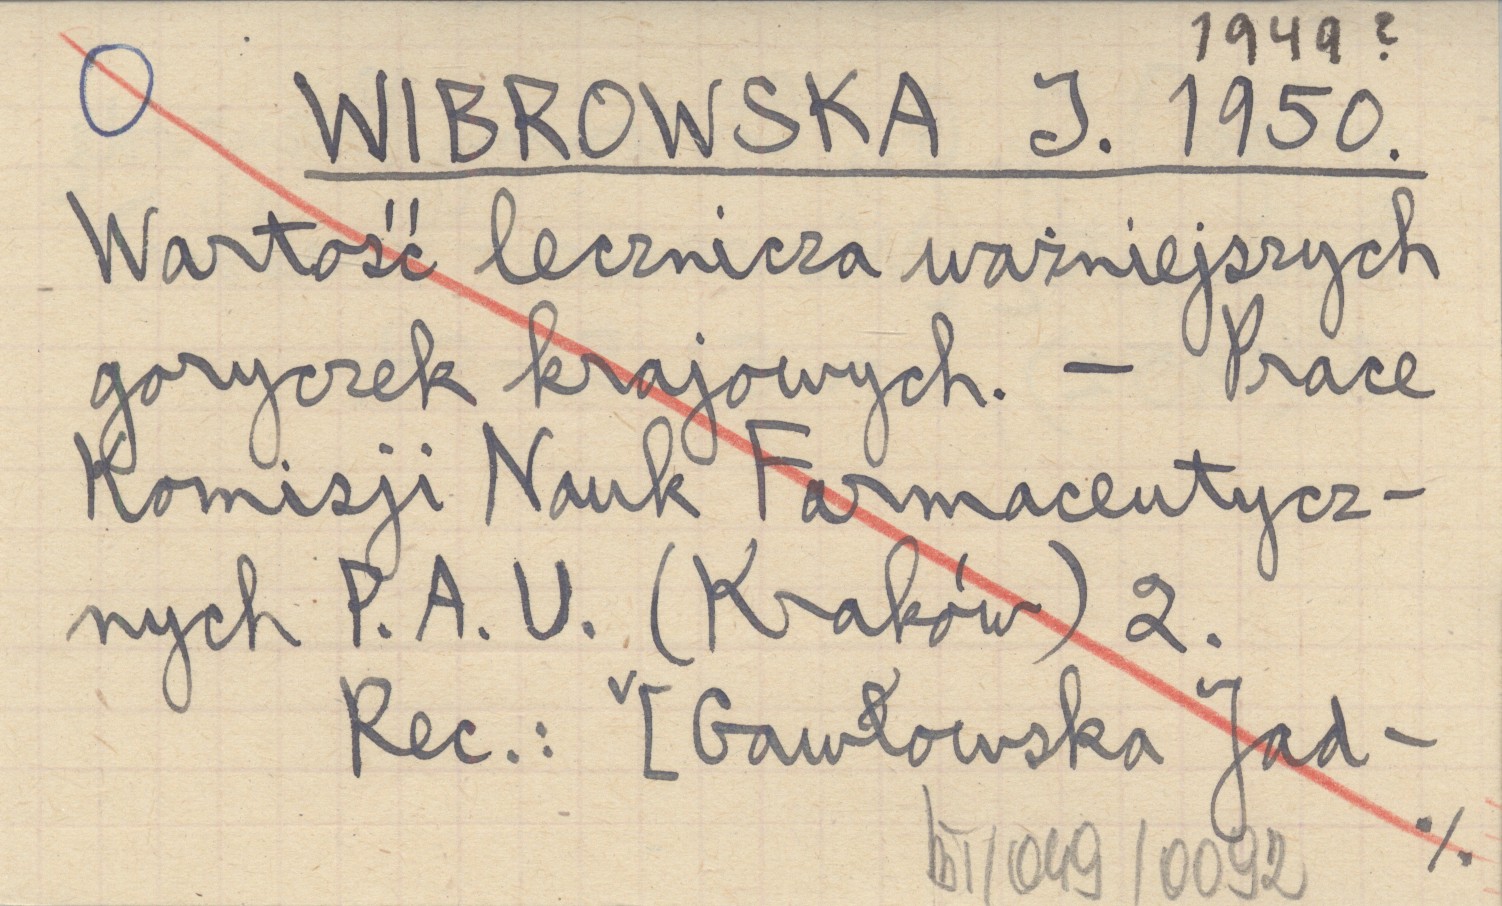 1949?
WIBROWSKA J. 1950.
Wartość lecznicza ważniejszych
goryczek krajowych. — Prace
Komisji Nauk Farmaceutycz-
nych P.A.U. (Kraków) 2.
Rec.: [Gawłowska Jad-
/049/0092
./.